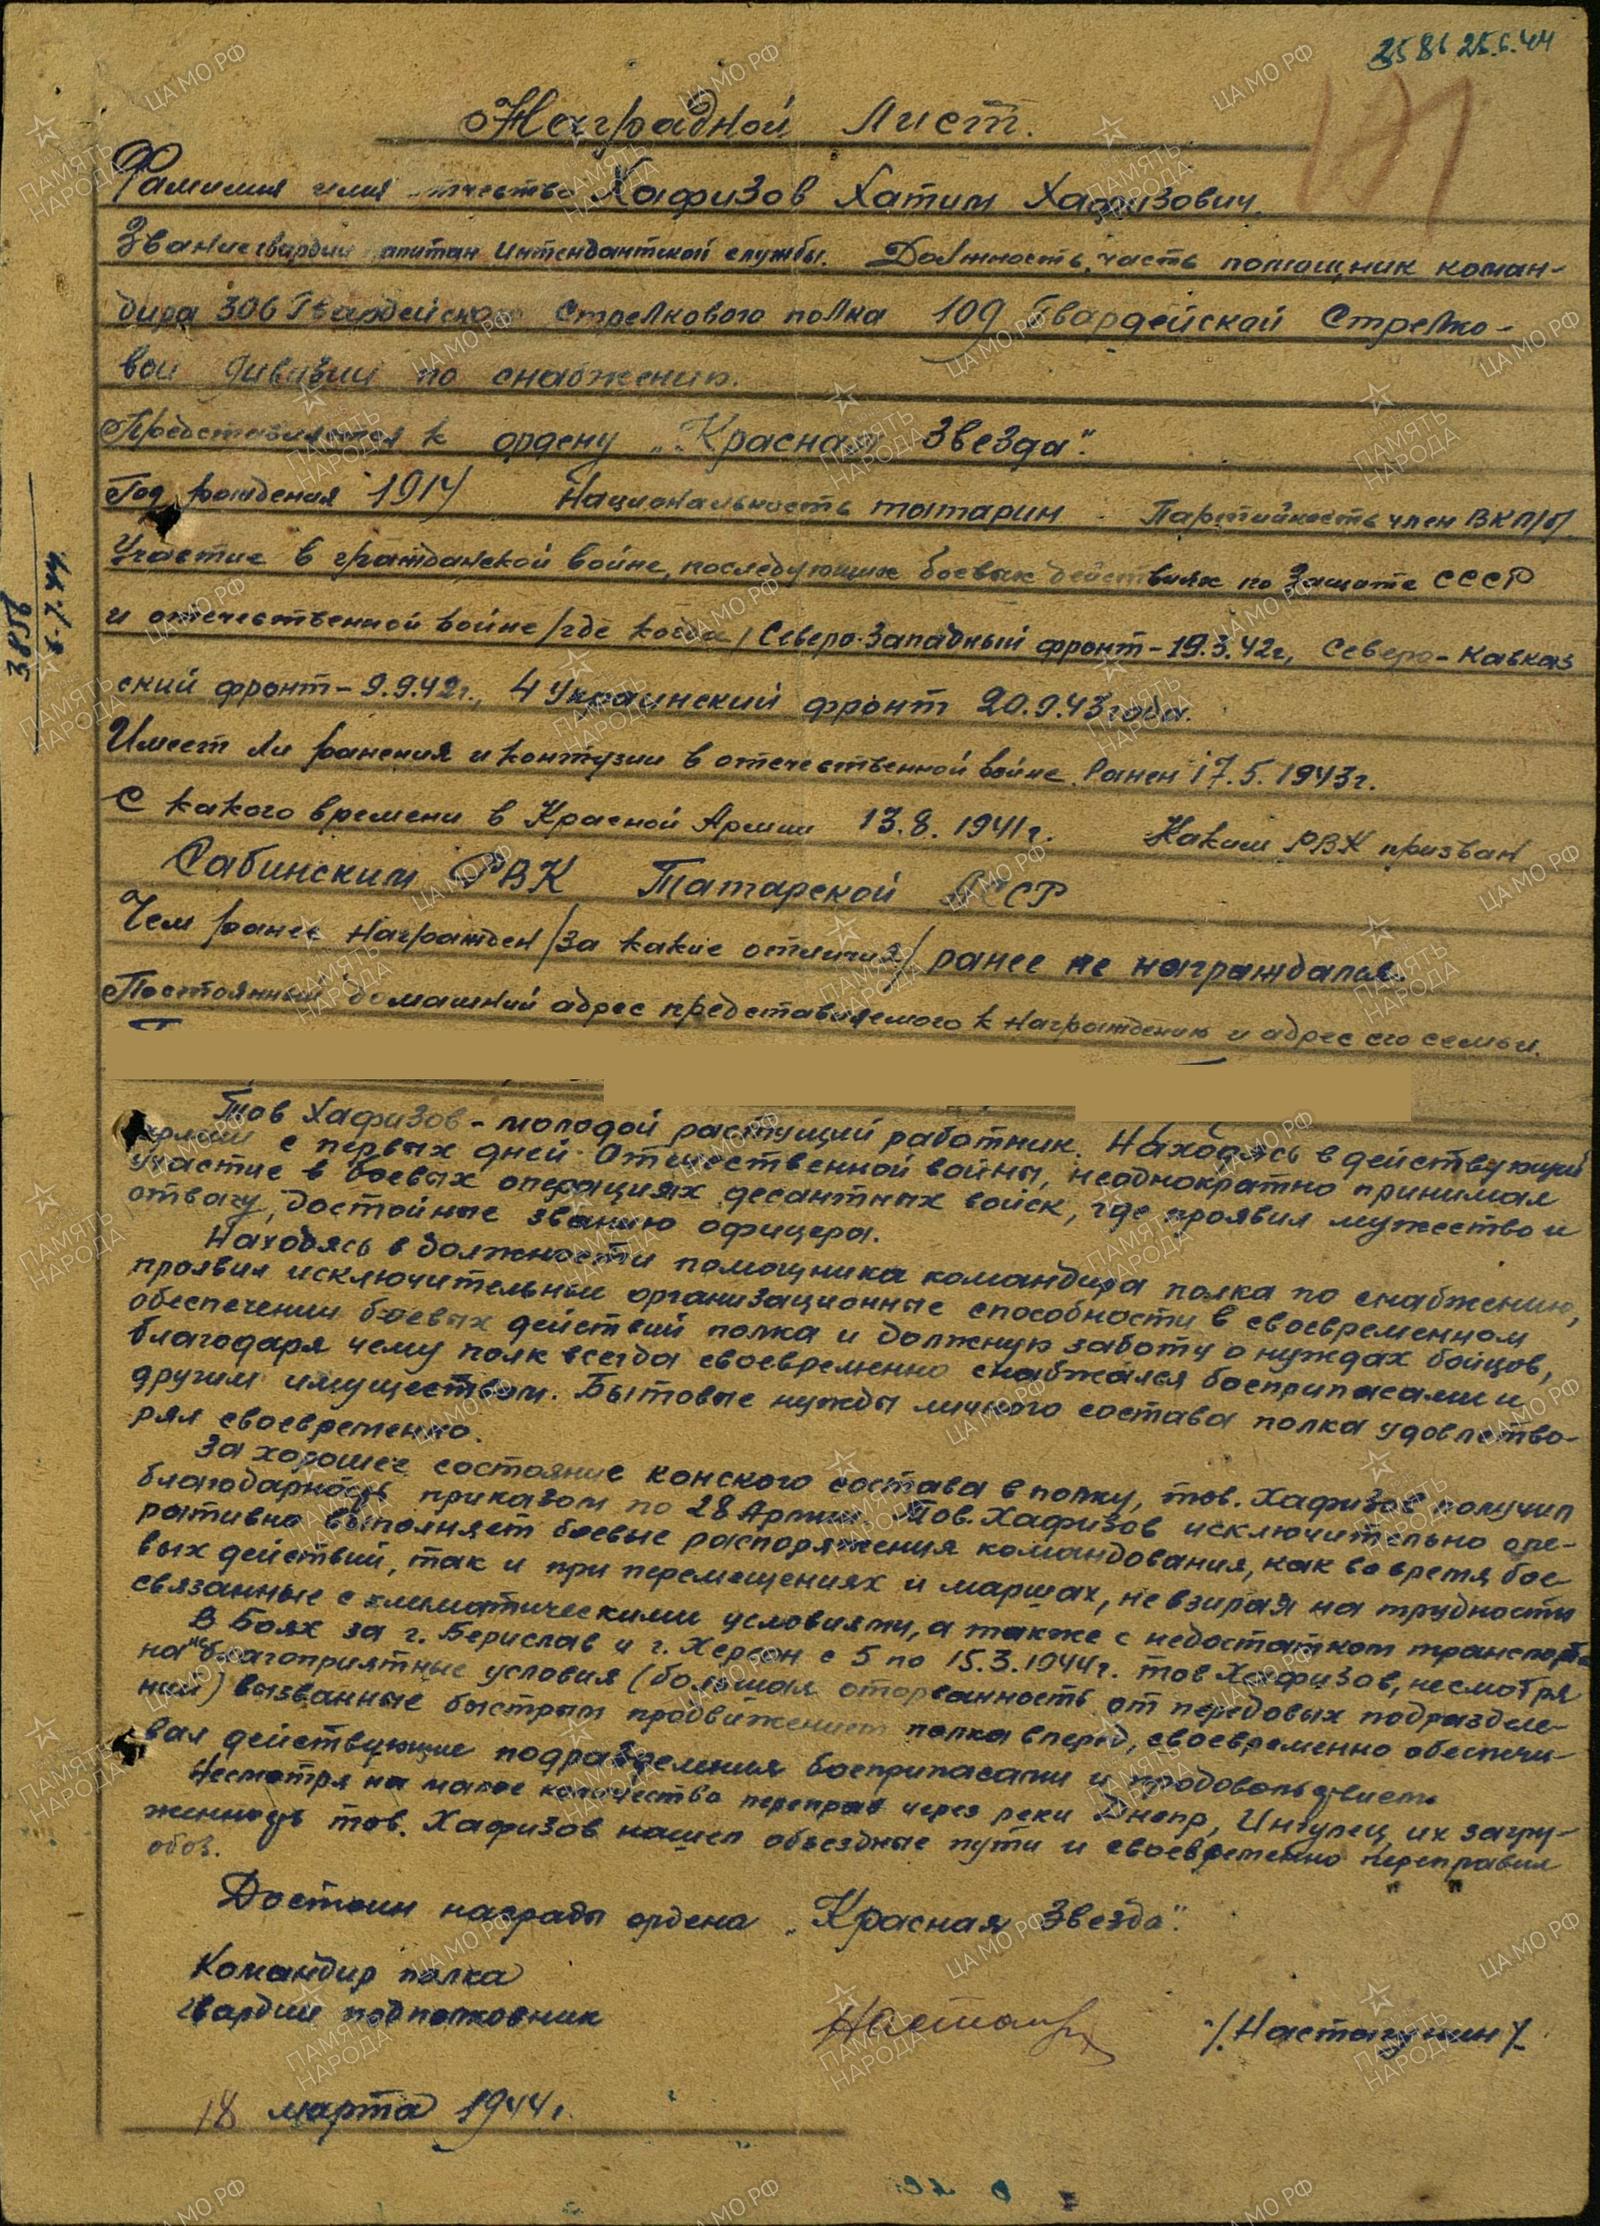 25.6.44
171
Наградной Лист.
Фамилия имя отчество Хафизов Хатип Хафизович.
Звание гвардии капитан Интендантской службы. Должность, часть помощник коман-
дира 306 Гвардейского Стрелкового полка 109 Гвардейской Стрелко-
вой дивизии по снабжению.
Представляется к ордену „Красная Звезда".
Год рождения 1917 Национальность татарин. Партийность член ВКП/б/.
Участие в гражданской войне, последующих боевых действиях по защите СССР
и отечественной войне /где когда/ Северо-Западный фронт-19.3.42г., Северо-Кавказ
ский фронт-9.9.42г., 4 Украинский фронт 20.9.43 года.
Имеет ли ранения и контузии в отечественной войне. Ранен 17.5.1943г.
С какого времени в Красной Армии 13.8.1941г. Каким РВК призван
Сабинским РВК Татарской АССР
Чем ранее награжден /за какие отличия/ ранее не награждался.
Постоянный домашний адрес представляемого к награждению и адрес его семьи.
Тов Хафизов-молодой растущий работник. Находясь в действующей
армии с первых дней Отечественной войны, неоднократно принимал
участие в боевых операциях десантных войск, где проявил мужество и
отвагу, достойные званию офицера.
Находясь в должности помощника командира полка по снабжению,
проявил исключительные организационные способности в своевременном
обеспечении боевых действий полка и должную заботу о нуждах бойцов,
благодаря чему полк всегда своевременно снабжался боеприпасами и
другим имуществом. Бытовые нужды личного состава полка удовлетво-
рял своевременно.
За хорошее состояние конского состава в полку, тов. Хафизов получил
благодарность приказом по 28 Армии. Тов. Хафизов исключительно опе-
ративно выполняет боевые распоряжения командования, как во время бое
вых действий, так и при перемещениях и маршах, не взирая на трудности
связанные с климатическими условиями, а также с недостатком транспорта
В Боях за г. Берислав и г. Херсон с 5 по 15.3.1944г. тов Хафизов, несмотря
на не благоприятные условия (большая оторванность от передовых подразделе-
ний) вызванные быстрым продвижением полка вперед, своевременно обеспечи-
вал действующие подразделения боеприпасами и продовольствием.
Несмотря на малое количество переправ через реки Днепр, Ингулец, их загру-
женность тов. Хафизов нашел объездные пути и своевременно переправил
обоз.
Достоин награды ордена „Красная Звезда".
Командир полка
гвардии подполковник /Настагунин/
18 марта 1944г.
3856
6-7.44
ПАМЯТЬ НАРОДА
ЦАМО РФ